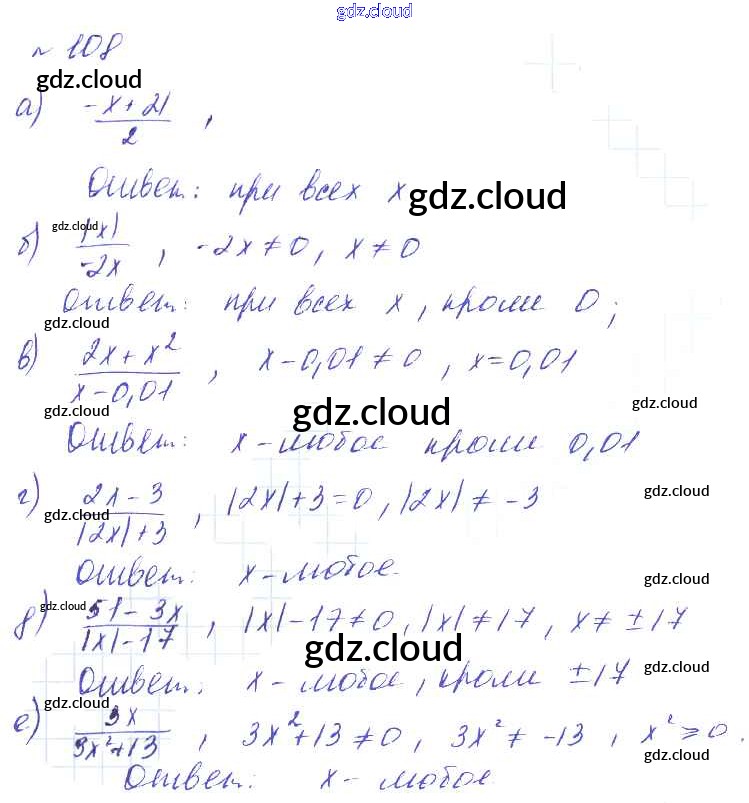 gdz.cloud
№ 108
gdz.cloud
а) -x + 21 / 2 ,
Ответ: при всех x
gdz.cloud
gdz.cloud
б) |x| / -2x , -2x ≠ 0, x ≠ 0
Ответ: при всех x, кроме 0;
gdz.cloud
в) 2x + x² / x - 0,01 , x - 0,01 ≠ 0, x = 0,01
gdz.cloud
gdz.cloud
gdz.cloud
Ответ: x - любое кроме 0,01
г) 2x - 3 / |2x| + 3 , |2x| + 3 = 0, |2x| ≠ -3
gdz.cloud
gdz.cloud
Ответ: x - любое
gdz.cloud
gdz.cloud
д) 51 - 3x / |x| - 17 , |x| - 17 ≠ 0, |x| ≠ 17, x ≠ ±17
gdz.cloud
gdz.cloud
Ответ: x - любое, кроме ±17
gdz.cloud
е) 3x / 3x² + 13 , 3x² + 13 ≠ 0, 3x² ≠ -13, x² ≥ 0.
gdz.cloud
Ответ: x - любое